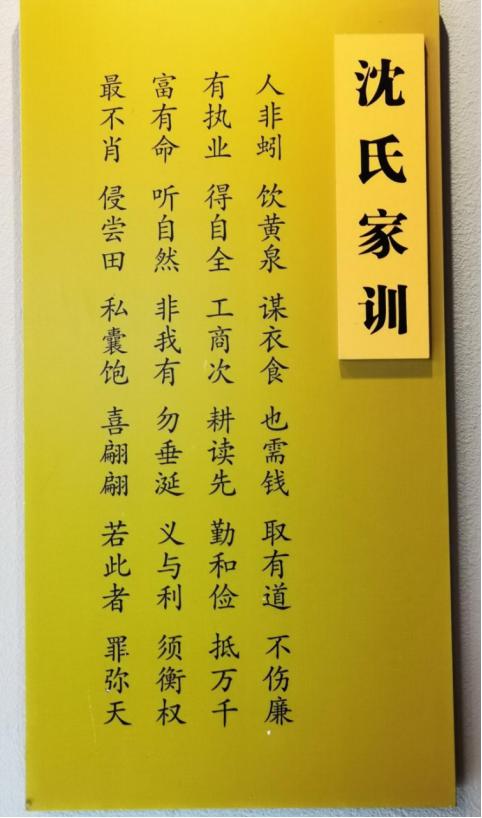 沈氏家训
人非蚓 饮黄泉 谋衣食 也需钱 取有道 不伤廉
有执业 得自全 工商次 耕读先 勤和俭 抵万千
富有命 听自然 非我有 勿垂涎 义与利 须衡权
最不肖 侵尝田 私囊饱 喜翩翩 若此者 罪弥天